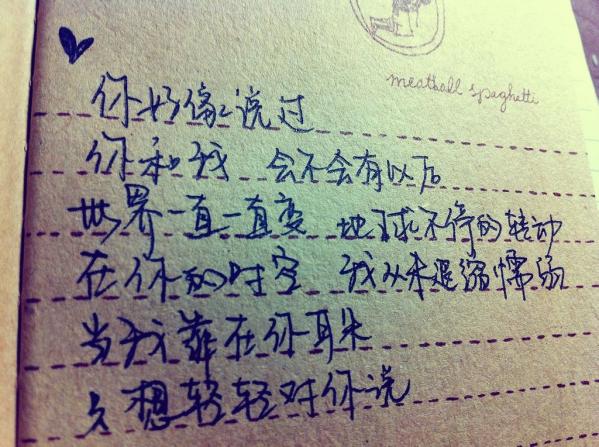 meatball spaghetti
你好像说过
你和我 会不会有以后
世界一直一直变 地球不停的转动
在你的时空 我从未退缩懦弱
当我靠在你耳朵
只想轻轻对你说